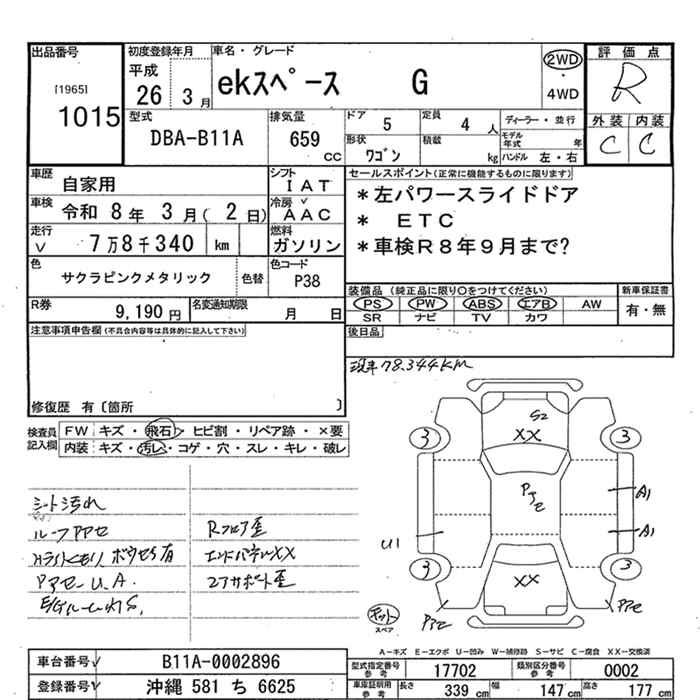 出品番号
[1965]
1015
初度登録年月
平成
26 3月
車名・グレード
ekスペース G
2WD
・
4WD
評価点
R
外装 内装
C C
型式
DBA-B11A
排気量
659
CC
ドア
5
定員
4人
形状
ワゴン
積載
kg
ディーラー・並行
モデル年式 年
ハンドル 左・右
車歴
自家用
シフト
IAT
車検
令和 8年 3月( 2日)
冷房
AAC
走行
7万8千340 km
燃料
ガソリン
色
サクラピンクメタリック
色替
色コード
P38
セールスポイント(正常に機能するものに限ります)
*左パワースライドドア
* ETC
*車検R8年9月まで?
装備品 (純正品に限り〇をつけてください)
新車保証書
PS PW ABS エアB AW
有・無
SR ナビ TV カワ
R券
9,190 円
名変通知期限
月 日
後日品
注意事項申告欄(不具合内容等は具体的に記入して下さい)
現車78.344KM
修復歴 有〔箇所 〕
検査員記入欄
FW キズ・飛石・ヒビ割・リペア跡・×要
内装 キズ・汚レ・コゲ・穴・スレ・キレ・破レ
シート汚れ
ルーフPアセ
Hライトくもり
Pアセ U.A.
Rフロア歪
エンドパネルXX
コアサポート歪
S2
XX
3 3
Pアセ
A1
A1
U1
3 3
XX
Pアセ
Pアセ
キット
スペア
A-キズ E-エクボ U-凹み W-補修跡 S-サビ C-腐食 XX-交換済
車台番号
B11A-0002896
登録番号
沖縄 581 ち 6625
型式指定番号
参考
17702
類別区分番号
参考
0002
車庫証明用
参考
長さ
339 cm
幅
147 cm
高さ
177 cm